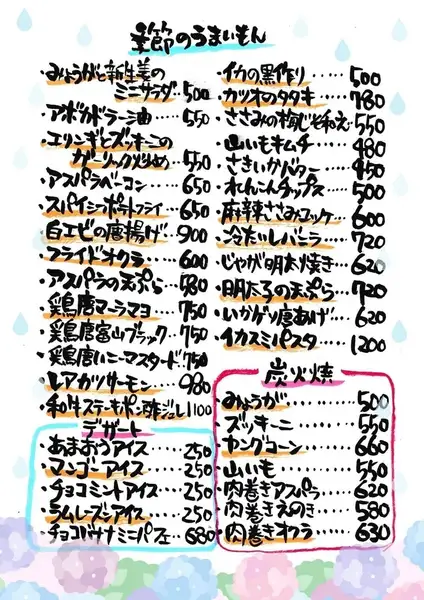 季節のうまいもん
・みょうがと新生姜の
ミニサラダ…500
・アボカドラー油……550
・エリンギとズッキーニの
ガーリック炒め…550
・アスパラベーコン…650
・スパイシーポテトフライ…650
・白エビの唐揚げ…900
・フライドオクラ……600
・アスパラの天ぷら…580
・鶏唐マーラーマヨ…750
・鶏唐富山ブラック…750
・鶏唐ハニーマスタード…750
・レアカツサーモン…980
・和牛ステーキポン酢ジュレ1100
デザート
・あまおうアイス……250
・マンゴーアイス……250
・チョコミントアイス…250
・ラムレーズンアイス…250
・チョコバナナミニパフェ…680
・イカの黒作り……500
・カツオのタタキ…780
・ささみの梅じそ和え…550
・山いもキムチ……480
・さきいかバター…450
・れんこんチップス…500
・麻辣ささみユッケ…600
・冷たいレバニラ…720
・じゃが明太焼き…620
・明太子の天ぷら…720
・いかゲソ唐あげ…620
・イカスミパスタ…1200
炭火焼
・みょうが………500
・ズッキーニ……550
・ヤングコーン…660
・山いも…………550
・肉巻きアスパラ…620
・肉巻きえのき…580
・肉巻きオクラ…630